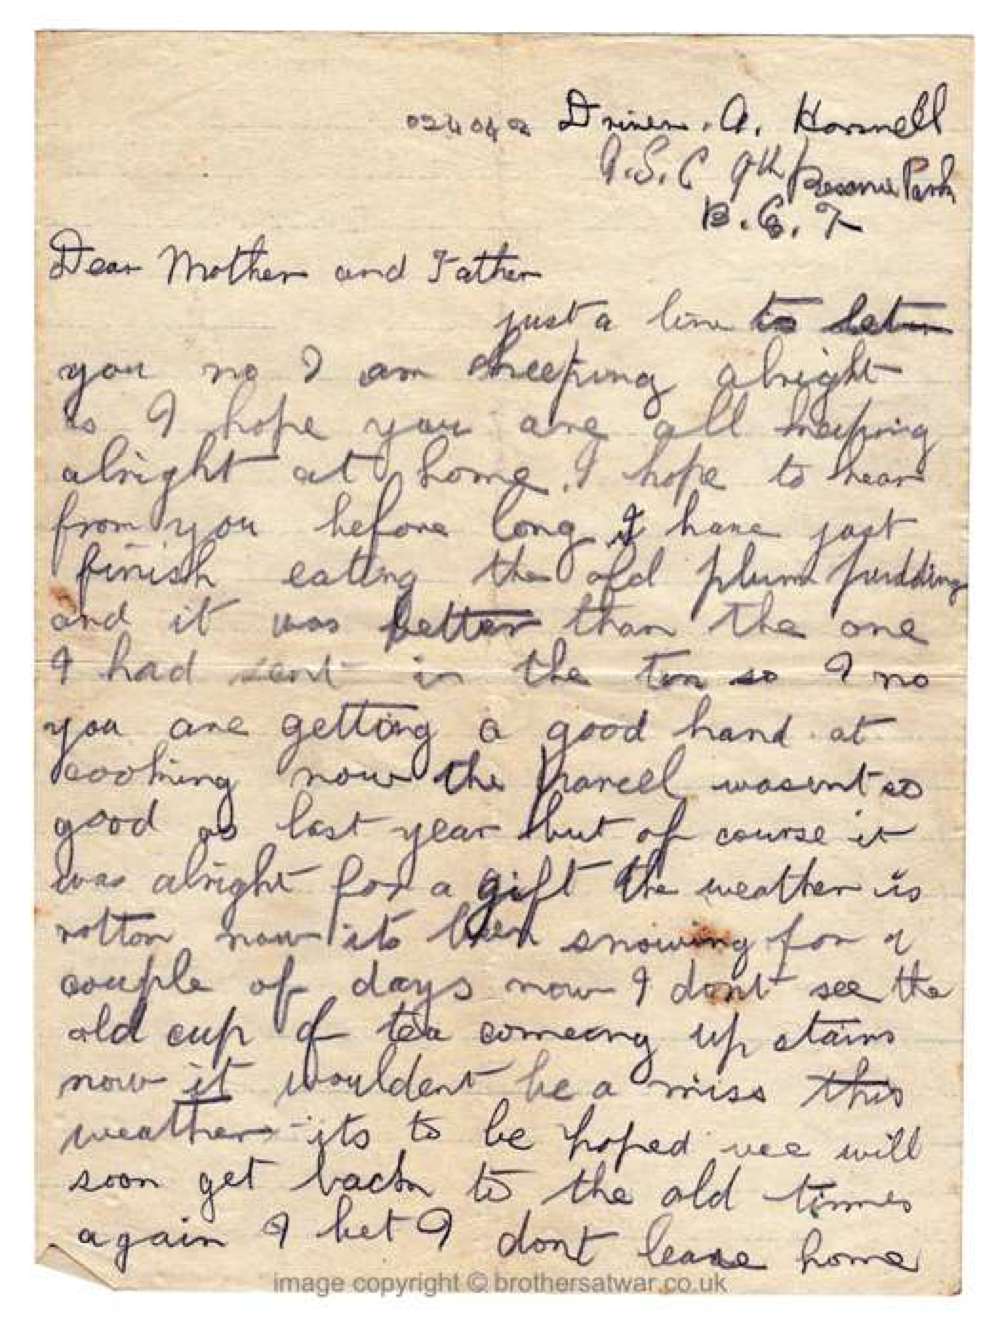 024042 Driver. A. Horsnell
A.S.C 9th Reserve Park
B.E.F
Dear Mother and Father
just a line to let
you no I am keeping alright
as I hope you are all keeping
alright at home. I hope to hear
from you before long I have just
finish eating the old plum pudding
and it was better than the one
I had sent in the tin so I no
you are getting a good hand at
cooking now the parcel wasent so
good as last year but of course it
was alright for a gift the weather is
rotton now its been snowing for a
couple of days now I dont see the
old cup of tea comeing up stairs
now it wouldent be a miss this
weather its to be hoped wee will
soon get back to the old times
again I bet I dont leave home
image copyright © brothersatwar.co.uk